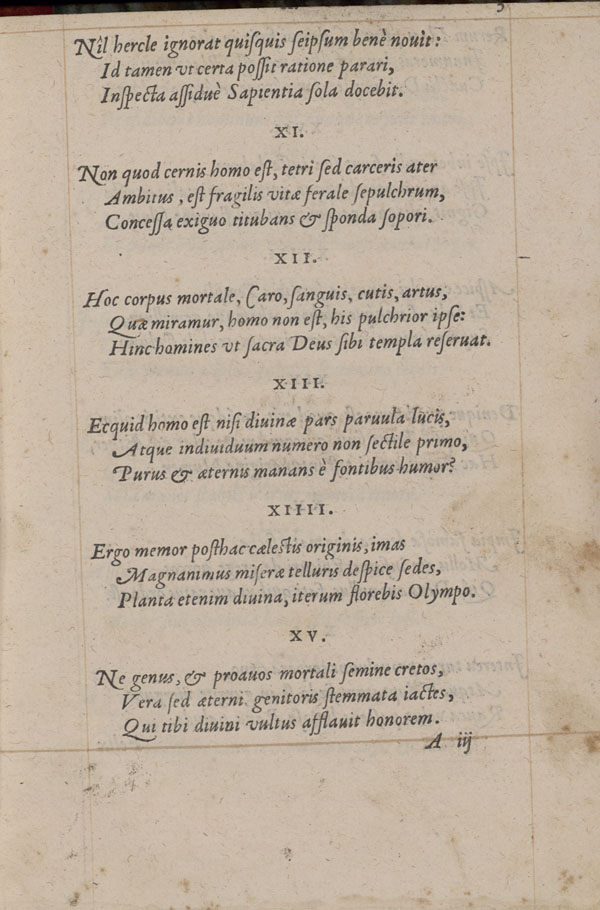 3
Nîl hercle ignorat quiſquis ſeipſum benè nouit:
Id tamen vt certa poſſit ratione parari,
Inſpecta aſſiduè Sapientia ſola docebit.
XI.
Non quod cernis homo eſt, tetri ſed carceris ater
Ambitus, eſt fragilis vitæ ferale ſepulchrum,
Conceſſa exiguo titubans & ſponda ſopori.
XII.
Hoc corpus mortale, Caro, ſanguis, cutis, artus,
Quæ miramur, homo non eſt, his pulchrior ipſe:
Hinc homines vt ſacra Deus ſibi templa reſeruat.
XIII.
Ecquid homo eſt niſi diuinæ pars paruula lucis,
Atque indiuiduum numero non ſectile primo,
Purus & æternis manans è fontibus humor?
XIIII.
Ergo memor poſthac cæleſtis originis, imas
Magnanimus miſeræ telluris deſpice ſedes,
Planta etenim diuina, iterum florebis Olympo.
XV.
Ne genus, & proauos mortali ſemine cretos,
Vera ſed æterni genitoris ſtemmata iactes,
Qui tibi diuini vultus afflauit honorem.
A iij